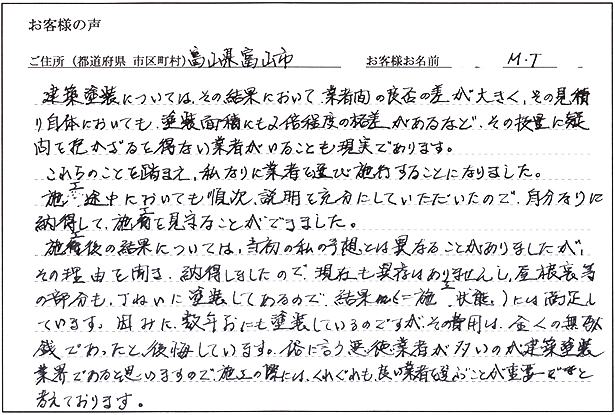 お客様の声
ご住所（都道府県 市区町村）富山県富山市 お客様お名前 M.T
建築塗装については、その結果において業者間の良否の差が大きく、その見積
り自体においても、塗装面積にも2倍程度の格差があるなど、その技量に疑
問を抱かざるを得ない業者がいることも現実であります。
これらのことを踏まえ、私なりに業者を選び施行することになりました。
施工途中においても順次、説明を充分にしていただいたので、自分なりに
納得して、施工を見守ることができました。
施工後の結果については、当初の私の予想とは異なることがありましたが、
その理由を聞き、納得しましたので、現在も異存はありませんし、屋根裏等
の部分も、ていねいに塗装してあるので、結果（＝施工状態。）には満足し
ています。因みに、数年おにも塗装しているのですが、その費用は、全くの無駄
銭であったと、後悔しています。俗に言う悪徳業者が多いのが建築塗装
業界であると思いますので施工の際には、くれぐれも、良い業者を選ぶことが重要でせと
考えております。